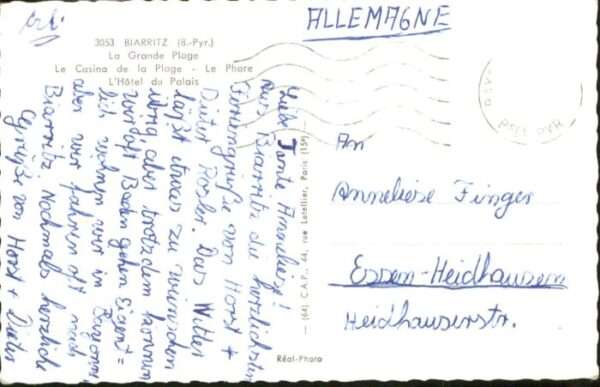 ALLEMAGNE
3053 BIARRITZ (B.-Pyr.)
La Grande Plage
Le Casino de la Plage - Le Phare
L'Hôtel du Palais
Liebe Tante Anneliese!
Aus Biarritz die herzlichsten
Feriengrüße von Horst +
Dieter Rösler. Das Wetter
läßt etwas zu wünschen
übrig, aber trotzdem können
wir oft Baden gehen. Eigent=
lich wohnen wir in Bayonne
aber wir fahren oft nach
Biarritz. Nochmals herzliche
Grüße von Horst + Dieter
(64) C.A.P., 44, rue Letellier, Paris (15e)
Réal-Photo
An
Anneliese Finger
Essen-Heidhausen
Heidhauserstr.